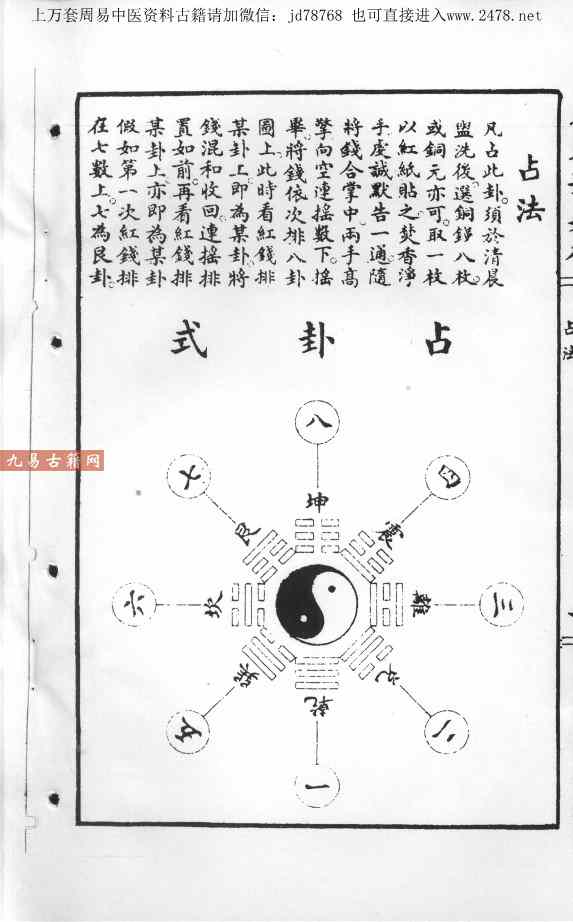 上万套周易中医资料古籍请加微信：jd78768 也可直接进入www.2478.net
占法
凡占此卦。須於清晨
盥洗後選銅錢八枚。
或銅元亦可。取一枚
以紅紙貼之。焚香淨
手。虔誠默告一通。隨
將錢合掌中。兩手高
擎向空連搖數下。搖
畢將錢依次排八卦
圖上。此時看紅錢排
某卦上。即為某卦。將
錢混和收回。連搖排
置如前。再看紅錢排
某卦上。亦即為某卦。
假如第一次紅錢排
在七數上。七為艮卦。
占卦式
八
坤
七
艮
四
震
六
坎
三
離
五
巽
二
兌
乾
一
九易古籍网
占法